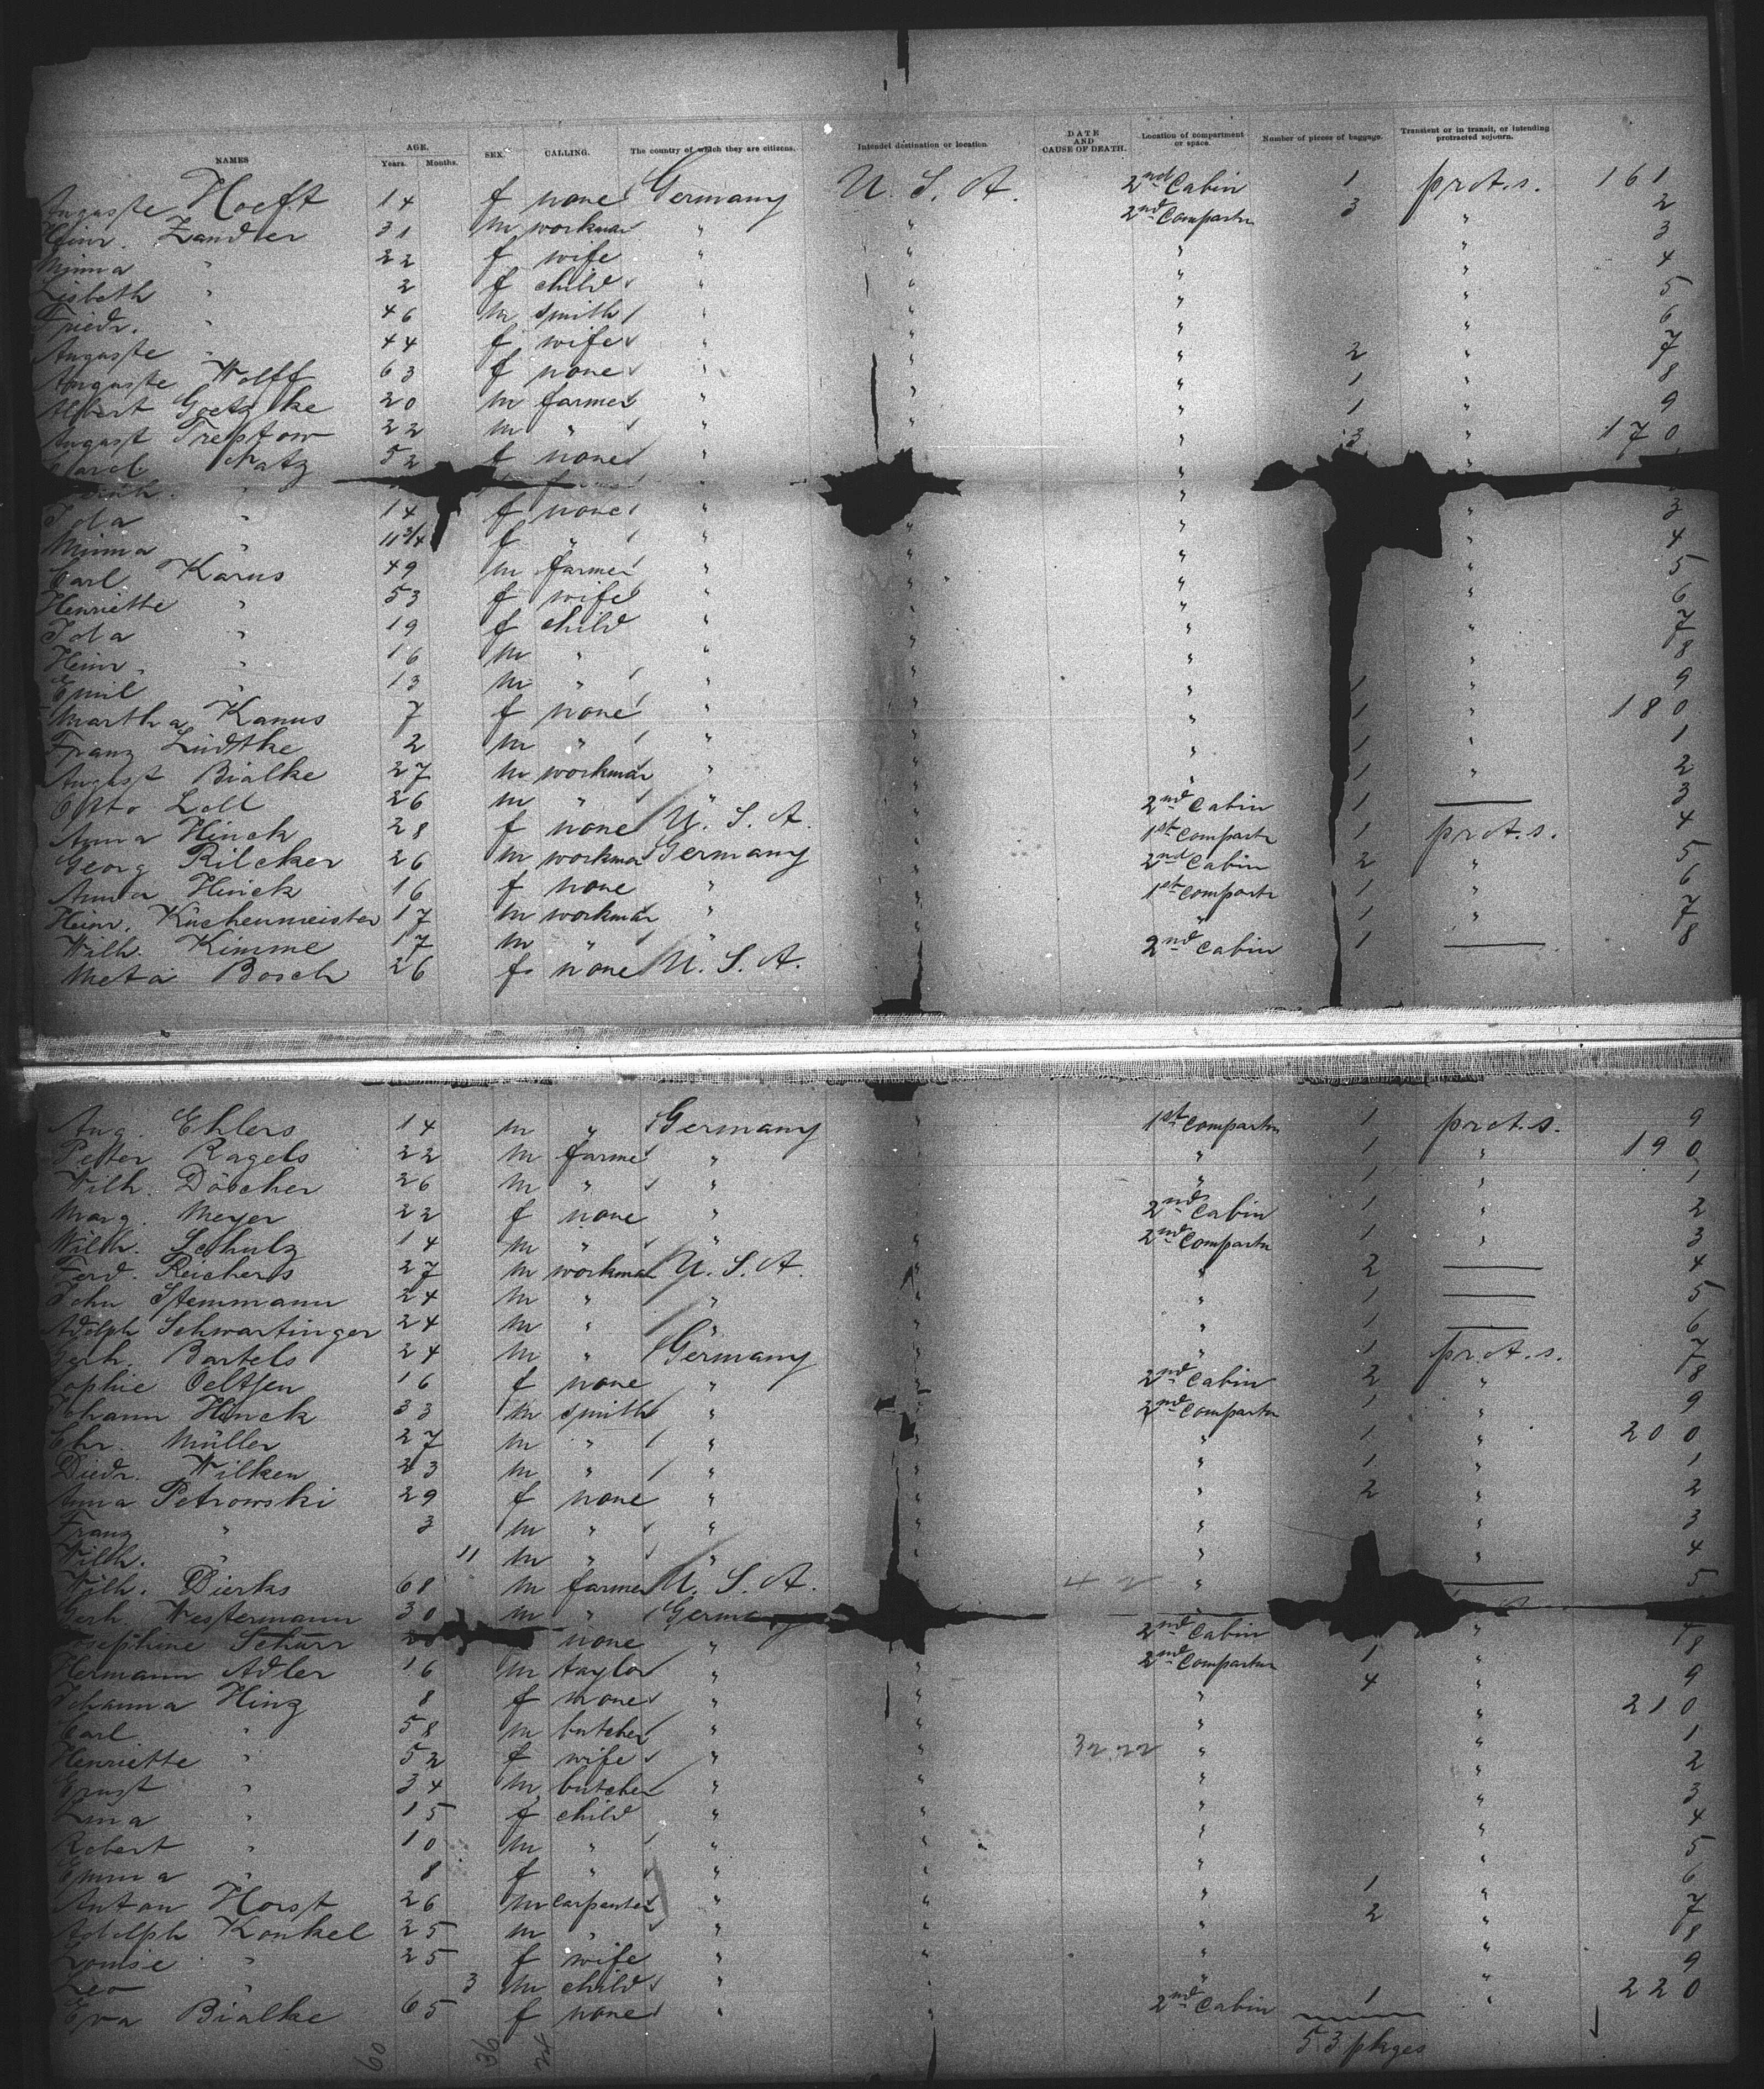 NAMES AGE. Years. Months. SEX. CALLING. The country of which they are citizens. Intended destination or location. DATE AND CAUSE OF DEATH. Location of compartment or space. Number of pieces of baggage. Transient or in transit, or intending protracted sojourn.
Auguste Hoeft 14 f none Germany U. S. A. 2nd Cabin 1 prot. s. 161
Heinr. Zander 31 m workman " " 2nd Compartm 3 " 2
Minna " 22 f wife " " " " 3
Lisbeth " 2 f child " " " " 4
Friedr. " 46 m smith " " " " 5
Auguste " 44 f wife " " " " 6
Auguste Wolff 63 f none " " " 2 " 7
Albert Goetzke 20 m farmer " " " 1 " 8
August Treptow 22 m " " " " 1 " 9
Chatz 52 f none " " " 3 " 170
"
Ida " 14 f none " " " " 3
Minna " 11 3/4 f " " " " " 4
Carl Karus 49 m farmer " " " " 5
Henriette " 53 f wife " " " " 6
Ida " 19 f child " " " " 7
Heinr. " 16 m " " " " " 8
Emil " 13 m " " " " 1 " 9
Martha Kanus 7 f none " " " 1 " 180
Franz Lüdtke 2 m " " " " 1 " 1
August Bialke 27 m workman " " " 1 " 2
Otto Loll 26 m " " 2nd Cabin 1 — 3
Anna Hinck 28 f none U. S. A. 1st Compartm 1 prot. s. 4
Georg Rilcker 26 m workman Germany 2nd Cabin 2 " 5
Anna Hinck 16 f none " 1st Compartm 1 " 6
Heinr. Küchenmeister 17 m workman " " 1 " 7
Wilh. Kimme 17 m " " 2nd Cabin 1 — 8
Meta Bosch 26 f none U. S. A.
Aug. Ehlers 14 m " Germany " 1st Compartm 1 prot. s. 9
Peter Ragels 22 m farmer " " 1 " 190
Wilh. Döscher 26 m " " " 1 " 1
Marg. Meyer 22 f none " 2nd Cabin 1 " 2
Wilh. Schulz 14 m " " " 2nd Compartm 1 " 3
Ferd. Reichers 27 m workman U. S. A. " " 2 — 4
John Stemmann 24 m " " " " 1 — 5
Adolph Schwartinger 24 m " " " " 1 — 6
Gerh. Bartels 24 m " Germany " " 1 prot. s. 7
Sophie Oeltjen 16 f none " " 2nd Cabin 2 " 8
Johann Hinck 33 m smith " 2nd Compartm 1 " 9
Chr. Müller 27 m " " " 1 " 200
Diedr. Wilken 23 m " " " " 1 " 1
Anna Petrowski 29 f none " " " 2 " 2
Franz " 3 m " " " " " 3
Wilh. " 11 m " " " " " 4
Wilh. Dierks 68 m farmer U. S. A. " — 5
Gerh. Westermann 30 m " "
Josephine Schürr none " " 2nd Cabin " 7
Hermann Adler 16 m taylor " " 2nd Compartm 1 " 8
Johanna Hinz 8 f none " " " 4 " 9
Carl " 58 m butcher " " " " 210
Henriette " 52 f wife " " " " 1
Ernst " 34 m butcher " " " " 2
Lina " 15 f child " " " " 3
Robert " 10 m " " " " " 4
Emma " 8 f " " " " " 5
Anton Horst 26 m carpenter " " " 1 " 6
Adolph Konkel 25 m " " " " 2 " 7
Louise " 25 f wife " " " 8
Leo " 3 m child " " " " 9
Eva Bialke 65 f none " " 2nd Cabin 1 " 220
53 pkges
60 36 24